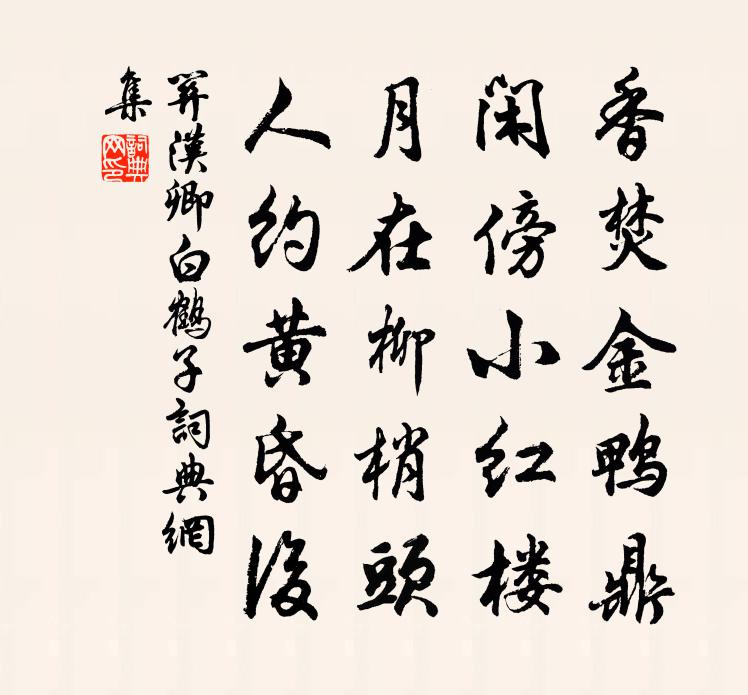 香焚金鴨鼎
閑傍小红楼
月在柳梢頭
人约黄昏後
関漢卿白鶴子詞典網
集
詞典網印